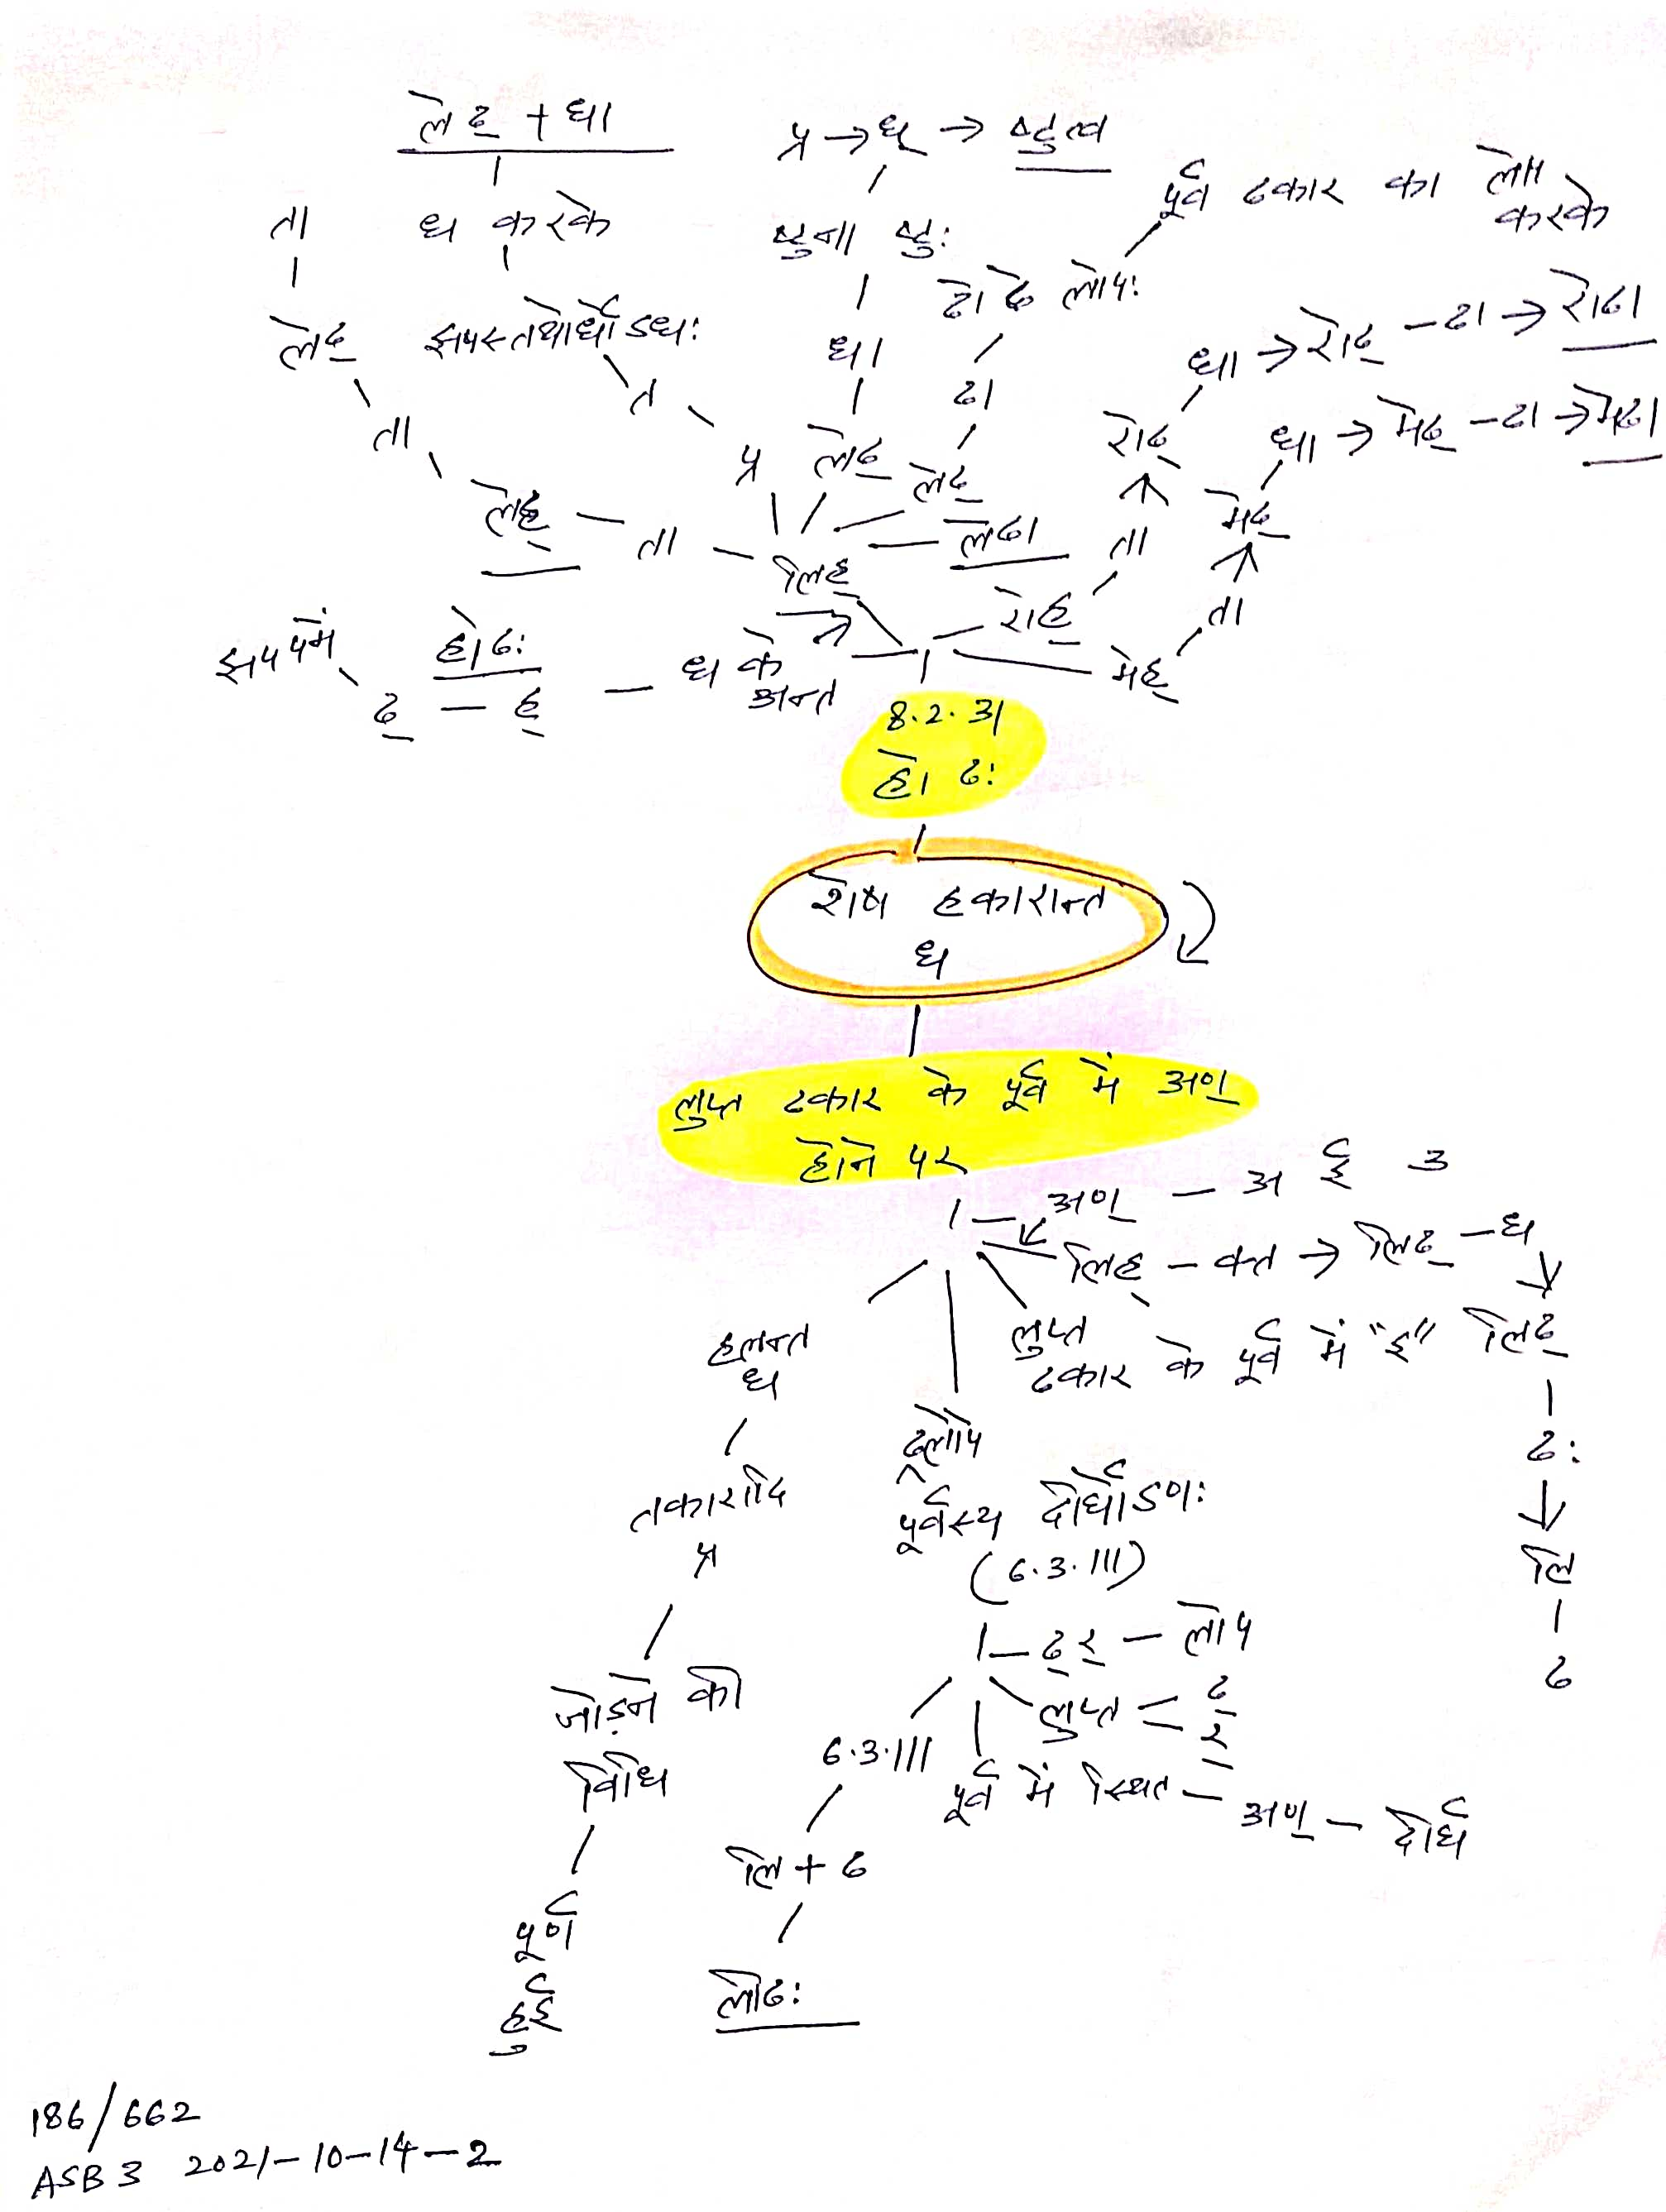 लेढ् + धा
प्र → ध् → ष्टुत्व
पूर्व ढकार का लोप
करके
ता
ध करके
ष्टुना ष्टुः
ढो ढे लोपः
लेढ्
झषस्तथोर्धोऽधः
धा
ढा
धा → रोढ् – ढा → रोढा
ता
त
प्र
लेढ्
लेढ्
रोढ्
धा → मेढ् – ढा → मेढा
लेह् – ता – लिह् – लेढा
ता
मेढ्
रोह्
ता
मेह्
झष परे
हो ढः
ढ् – ह् – ध के
अन्त
8.2.31
हो ढः
शेष हकारान्त
ध
लुप्त ढकार के पूर्व में अण्
होने पर
अण् – अ इ उ
लिह् – क्त → लिढ् – ध
हलन्त
ध
लुप्त
ढकार के पूर्व में "इ"
लिढ्
ढः
लि
ढ
ढ्रलोपे
पूर्वस्य दीर्घोऽणः
(6.3.111)
तकारादि
प्र
ढ् र् – लोप
लुप्त = ढ्
र्
जोड़ने की
विधि
6.3.111
पूर्व में स्थित – अण् – दीर्घ
लि + ढ
पूर्ण
हुई
लीढः
186/662
ASB 3 2021-10-14-2